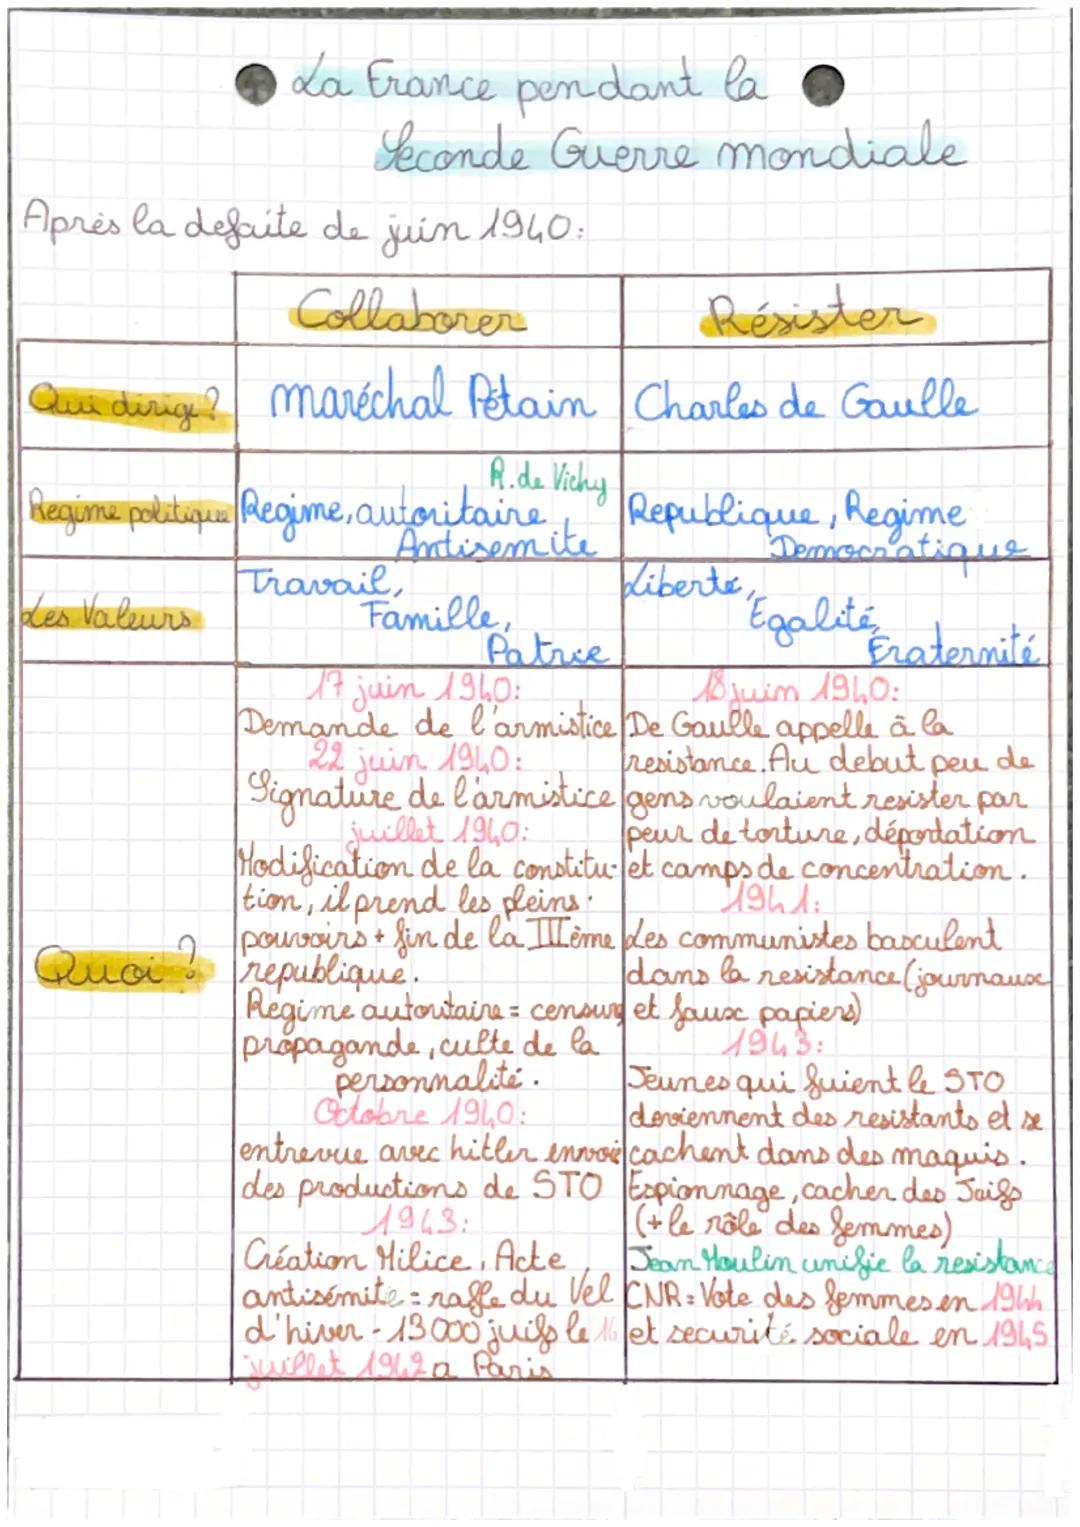 La France pendant la
Seconde Guerre mondiale
Après la defaite de juin 1940:
Collaborer
Résister
Qui dirige?
maréchal Pétain
Charles de Gaulle
Regime politique
R. de Vichy
Regime, autoritaire,
Antisemite
Republique, Regime
Democratique
Les Valeurs
Travail,
Famille,
Patrie
Liberte,
Egalité,
Fraternité
Quoi?
17 juin 1940:
Demande de l'armistice
22 juin 1940:
Signature de l'armistice
juillet 1940:
Modification de la constitu-
tion, il prend les pleins
pouvoirs + fin de la IIIème
republique.
Regime autoritaire = censure
propagande, culte de la
personnalité.
Octobre 1940:
entrevue avec hitler envoie
des productions de STO
1943:
Création Milice, Acte
antisémite = raffe du Vel
d'hiver - 13000 juifs le 16
juillet 1942 a Paris
18 juin 1940:
De Gaulle appelle à la
resistance. Au debut peu de
gens voulaient resister par
peur de torture, déportation
et camps de concentration.
1941:
Les communistes basculent
dans la resistance (journaux
et faux papiers)
1943:
Jeunes qui fuient le STO
deviennent des resistants et se
cachent dans des maquis.
Espionnage, cacher des Juifs
(+ le rôle des femmes)
Jean Moulin unifie la resistance
CNR = Vote des femmes en 1944
et securité sociale en 1945